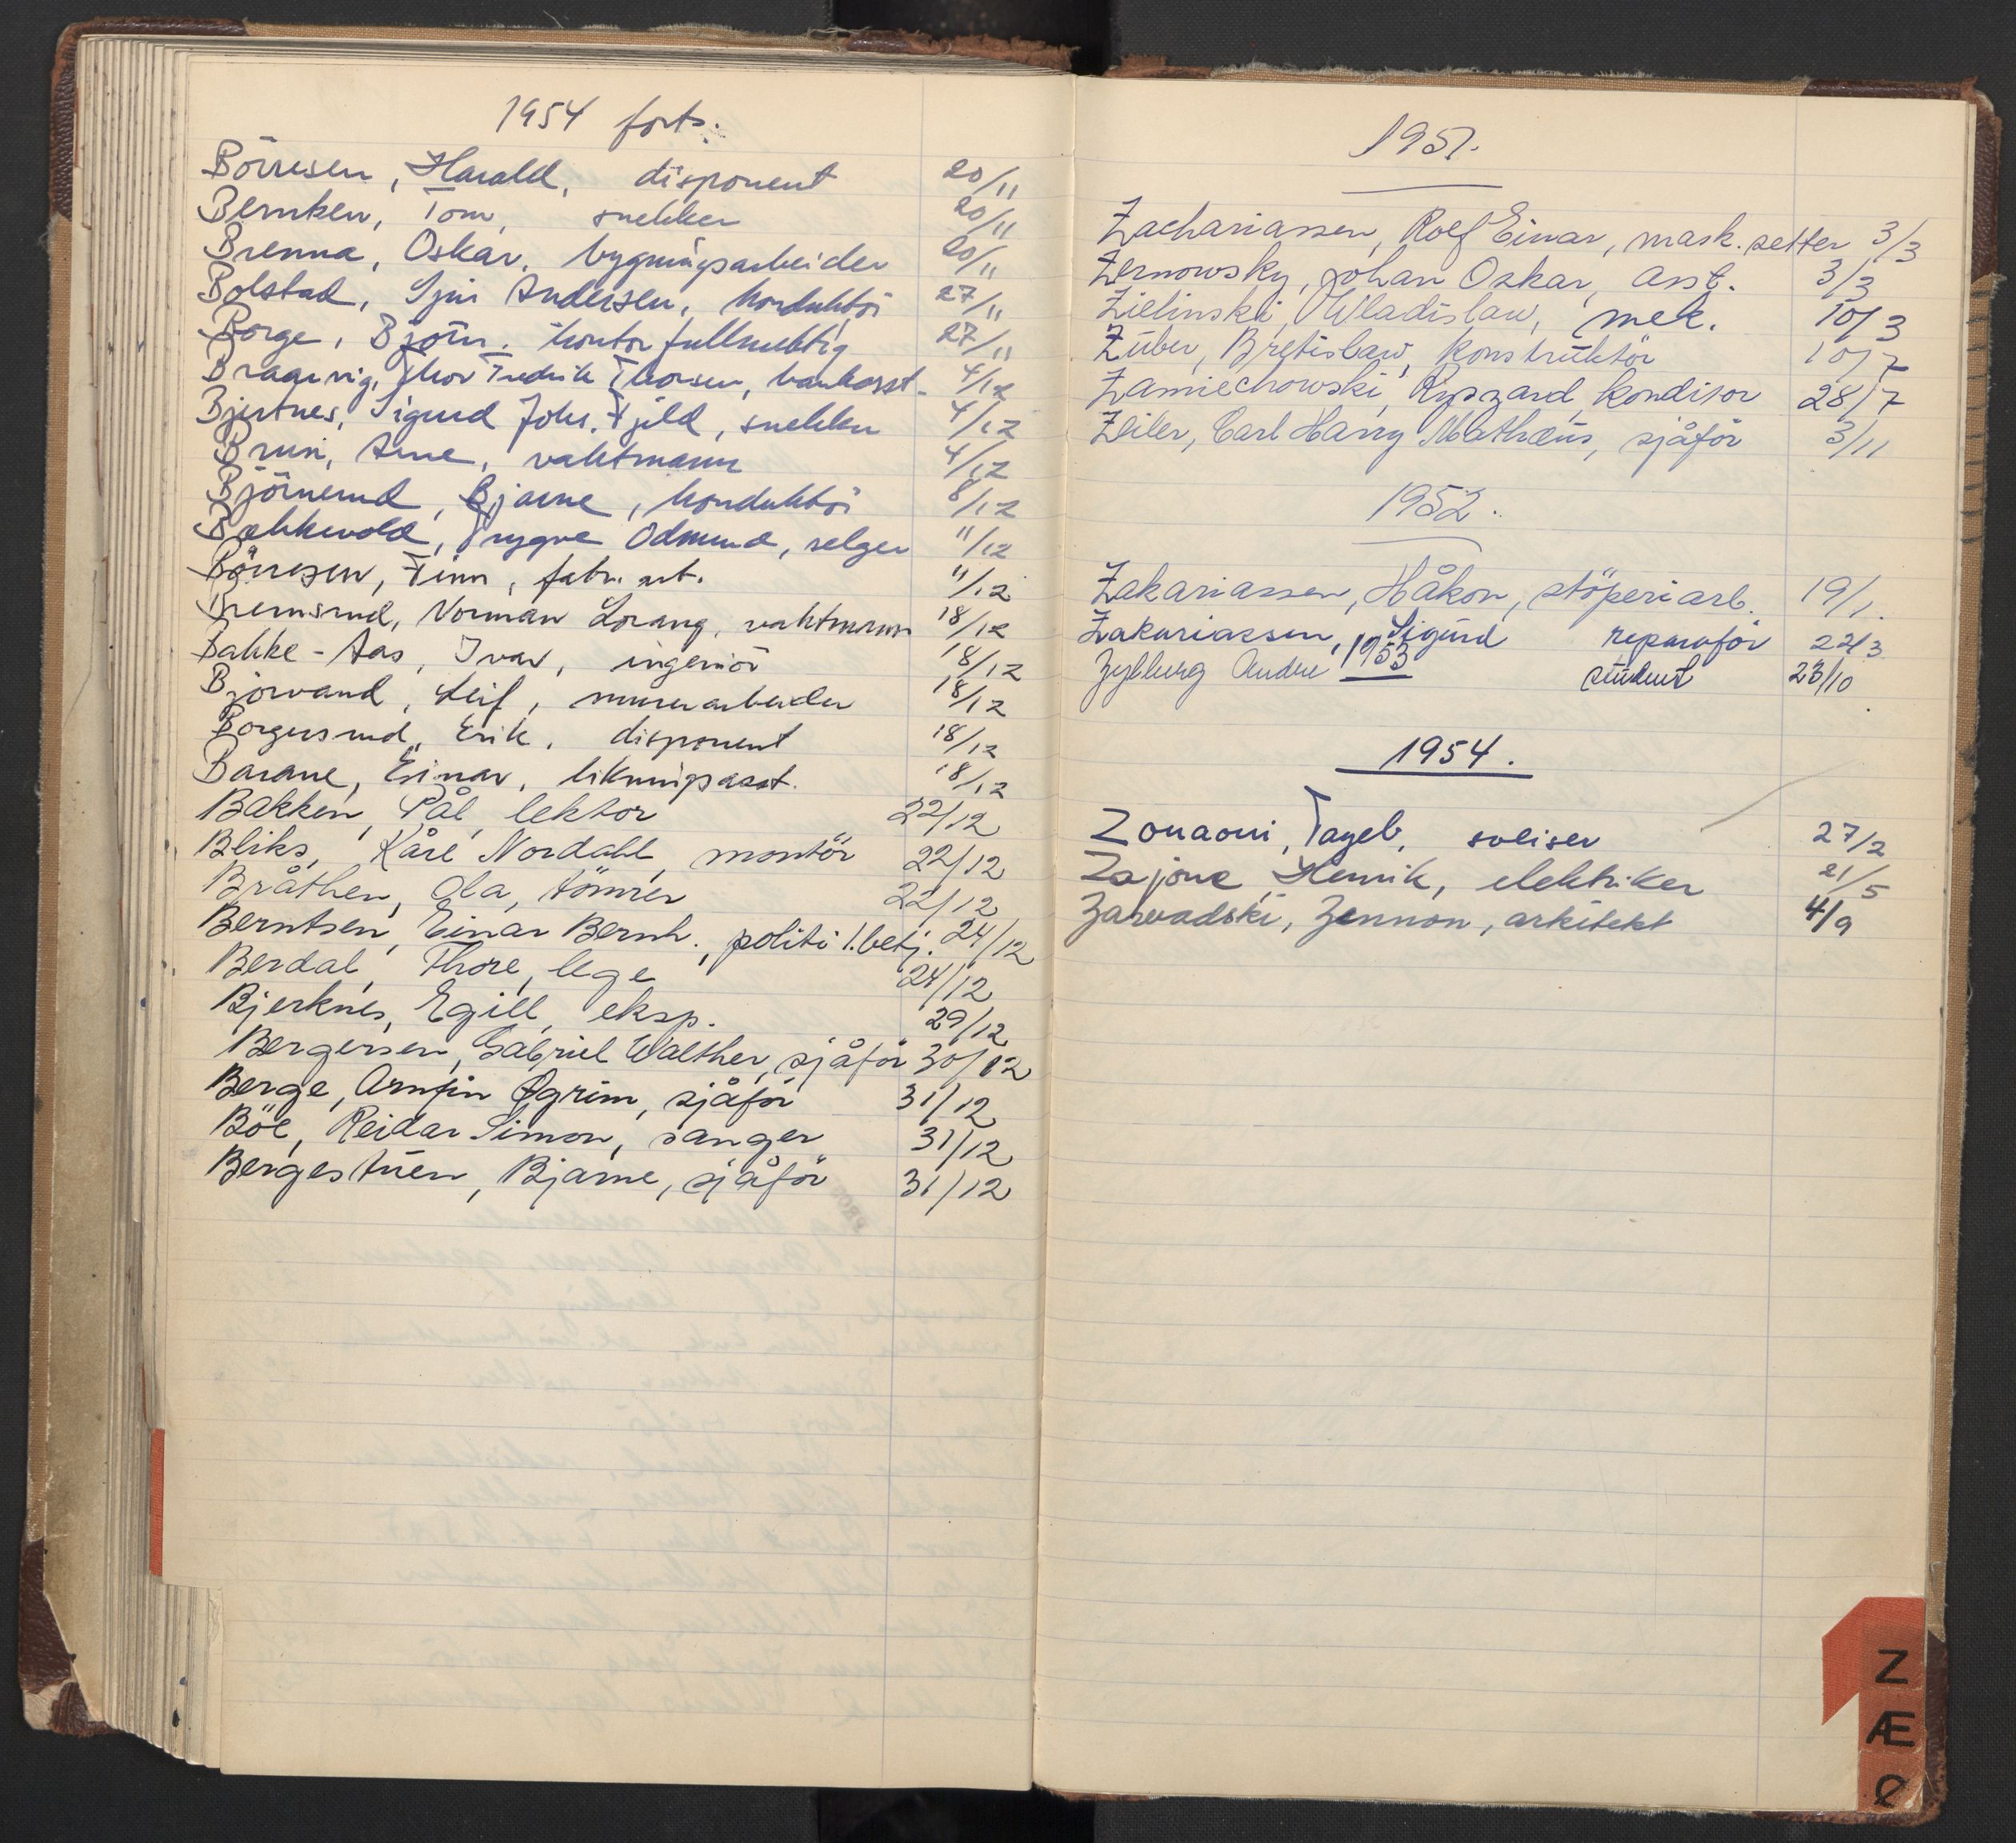 1954 forts.
Börresen, Harald, disponent 20/11
Bernken, Tom, snekker 20/11
Brenna, Oskar, bygningsarbeider 20/11
Bolstad, Andersen, konduktör 27/11
Borge, Björn. kontorfullmektig 27/11
Bragervig, Thor Fredrik Thorsen, bankasst. 4/12
Bjertnes, Sigurd Johs. Fjeld, snekker 4/12
Brun, Arne, vaktmann 4/12
Björnerud, Bjarne, konduktör 8/12
Bækkevold, Trygve Odmund, selger 11/12
Börresen, Finn, fabr. arb. 11/12
Bremsrud, Norman Lorang, vaktmann 18/12
Bakke-Aas, Ivar, ingeniör 18/12
Björvand, Leif, murerarbeider 18/12
Borgersrud, Erik, disponent 18/12
Barane, Einar, likningsasst. 18/12
Bakken, Pål, lektor 22/12
Bliks, Kåre Nordahl, montör 22/12
Bråthen, Ola, tömrer 22/12
Berntsen, Einar Bernh., politi 1.betj. 24/12
Berdal, Thore, lege 24/12
Bjerknes, Egill, eksp. 29/12
Bergersen, Gabriel Walther, sjåför 30/12
Berge, Arnfin Ogrim, sjåför 31/12
Böe, Reidar Simon, sanger 31/12
Bergestuen, Bjarne, sjåför 31/12
1951.
Zachariassen, Rolf Einar, mask.setter 3/3
Zernowsky, Johan Oskar, asst. 3/3
Zielinski, Wladislaw, mek. 10/3
Zuber, Bretislaw, konstruktör 10/7
Zamiechowski, Ryszard, kondisor 28/7
Zeiler, Carl Harry Mathæus, sjåför 3/11
1952.
Zakariassen, Håkon, stöperiarb. 19/1.
Zakariassen, Sigurd reparatör 22/3
1953
Zylberg Andre student 23/10
1954.
Zouaoui, Tayeb, soliser 27/2
Zajonc, Henrik, elektriker 21/5
Zarwadski, Zennon, arkitekt 4/9
Z
Æ
Ø